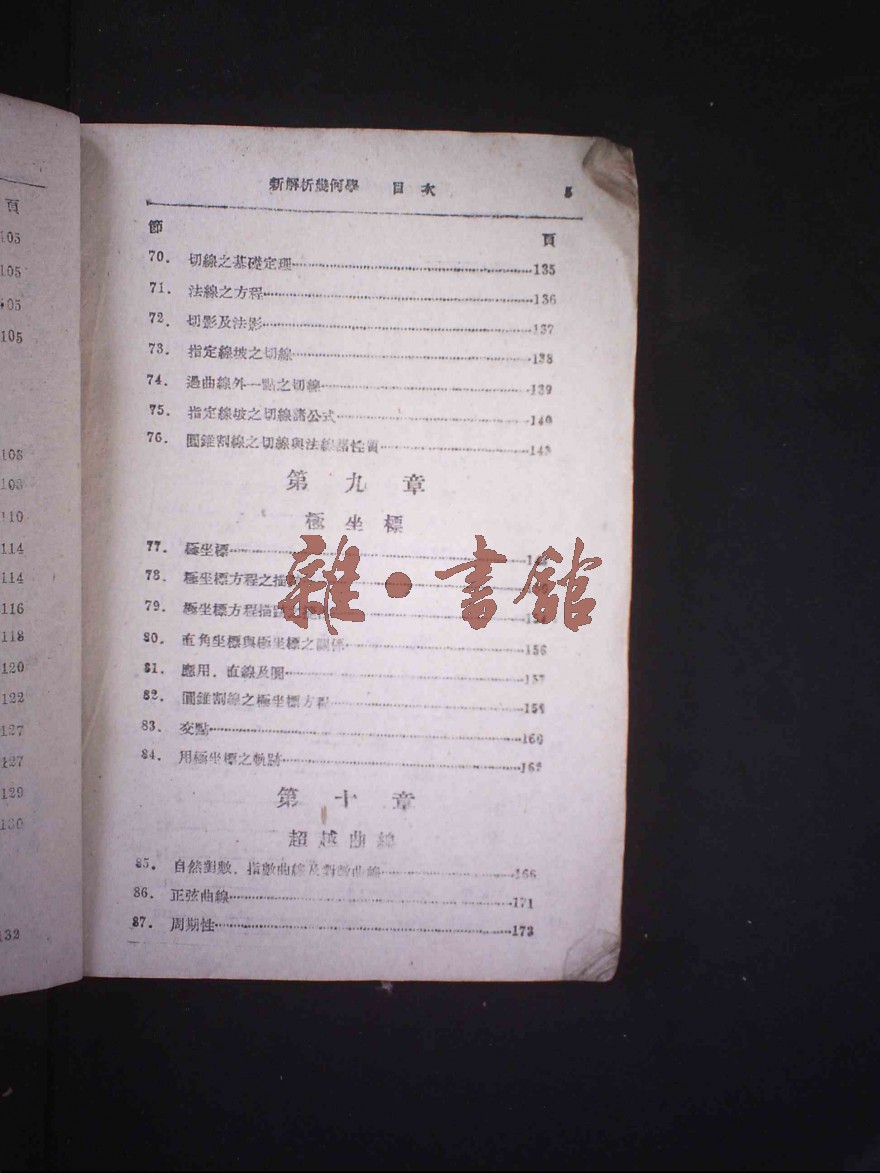 頁
105
105
105
105
108
108
110
114
114
116
118
120
122
127
127
129
130
132
新解析幾何學 目次 5
節
頁
70. 切線之基礎定理 135
71. 法線之方程 136
72. 切影及法影 137
73. 指定線坡之切線 138
74. 過曲線外一點之切線 139
75. 指定線坡之切線諸公式 140
76. 圓錐割線之切線與法線諸性質
第九章
極坐標
77. 極坐標
78. 極坐標方程之描
79. 極坐標方程描
80. 直角坐標與極坐標之關係 156
81. 應用．直線及圓 157
82. 圓錐割線之極坐標方程
83. 交點 160
84. 用極坐標之軌跡
第十章
超越曲線
85. 自然對數．指數曲線及對數曲線 166
86. 正弦曲線 171
87. 周期性 173
雜·書館